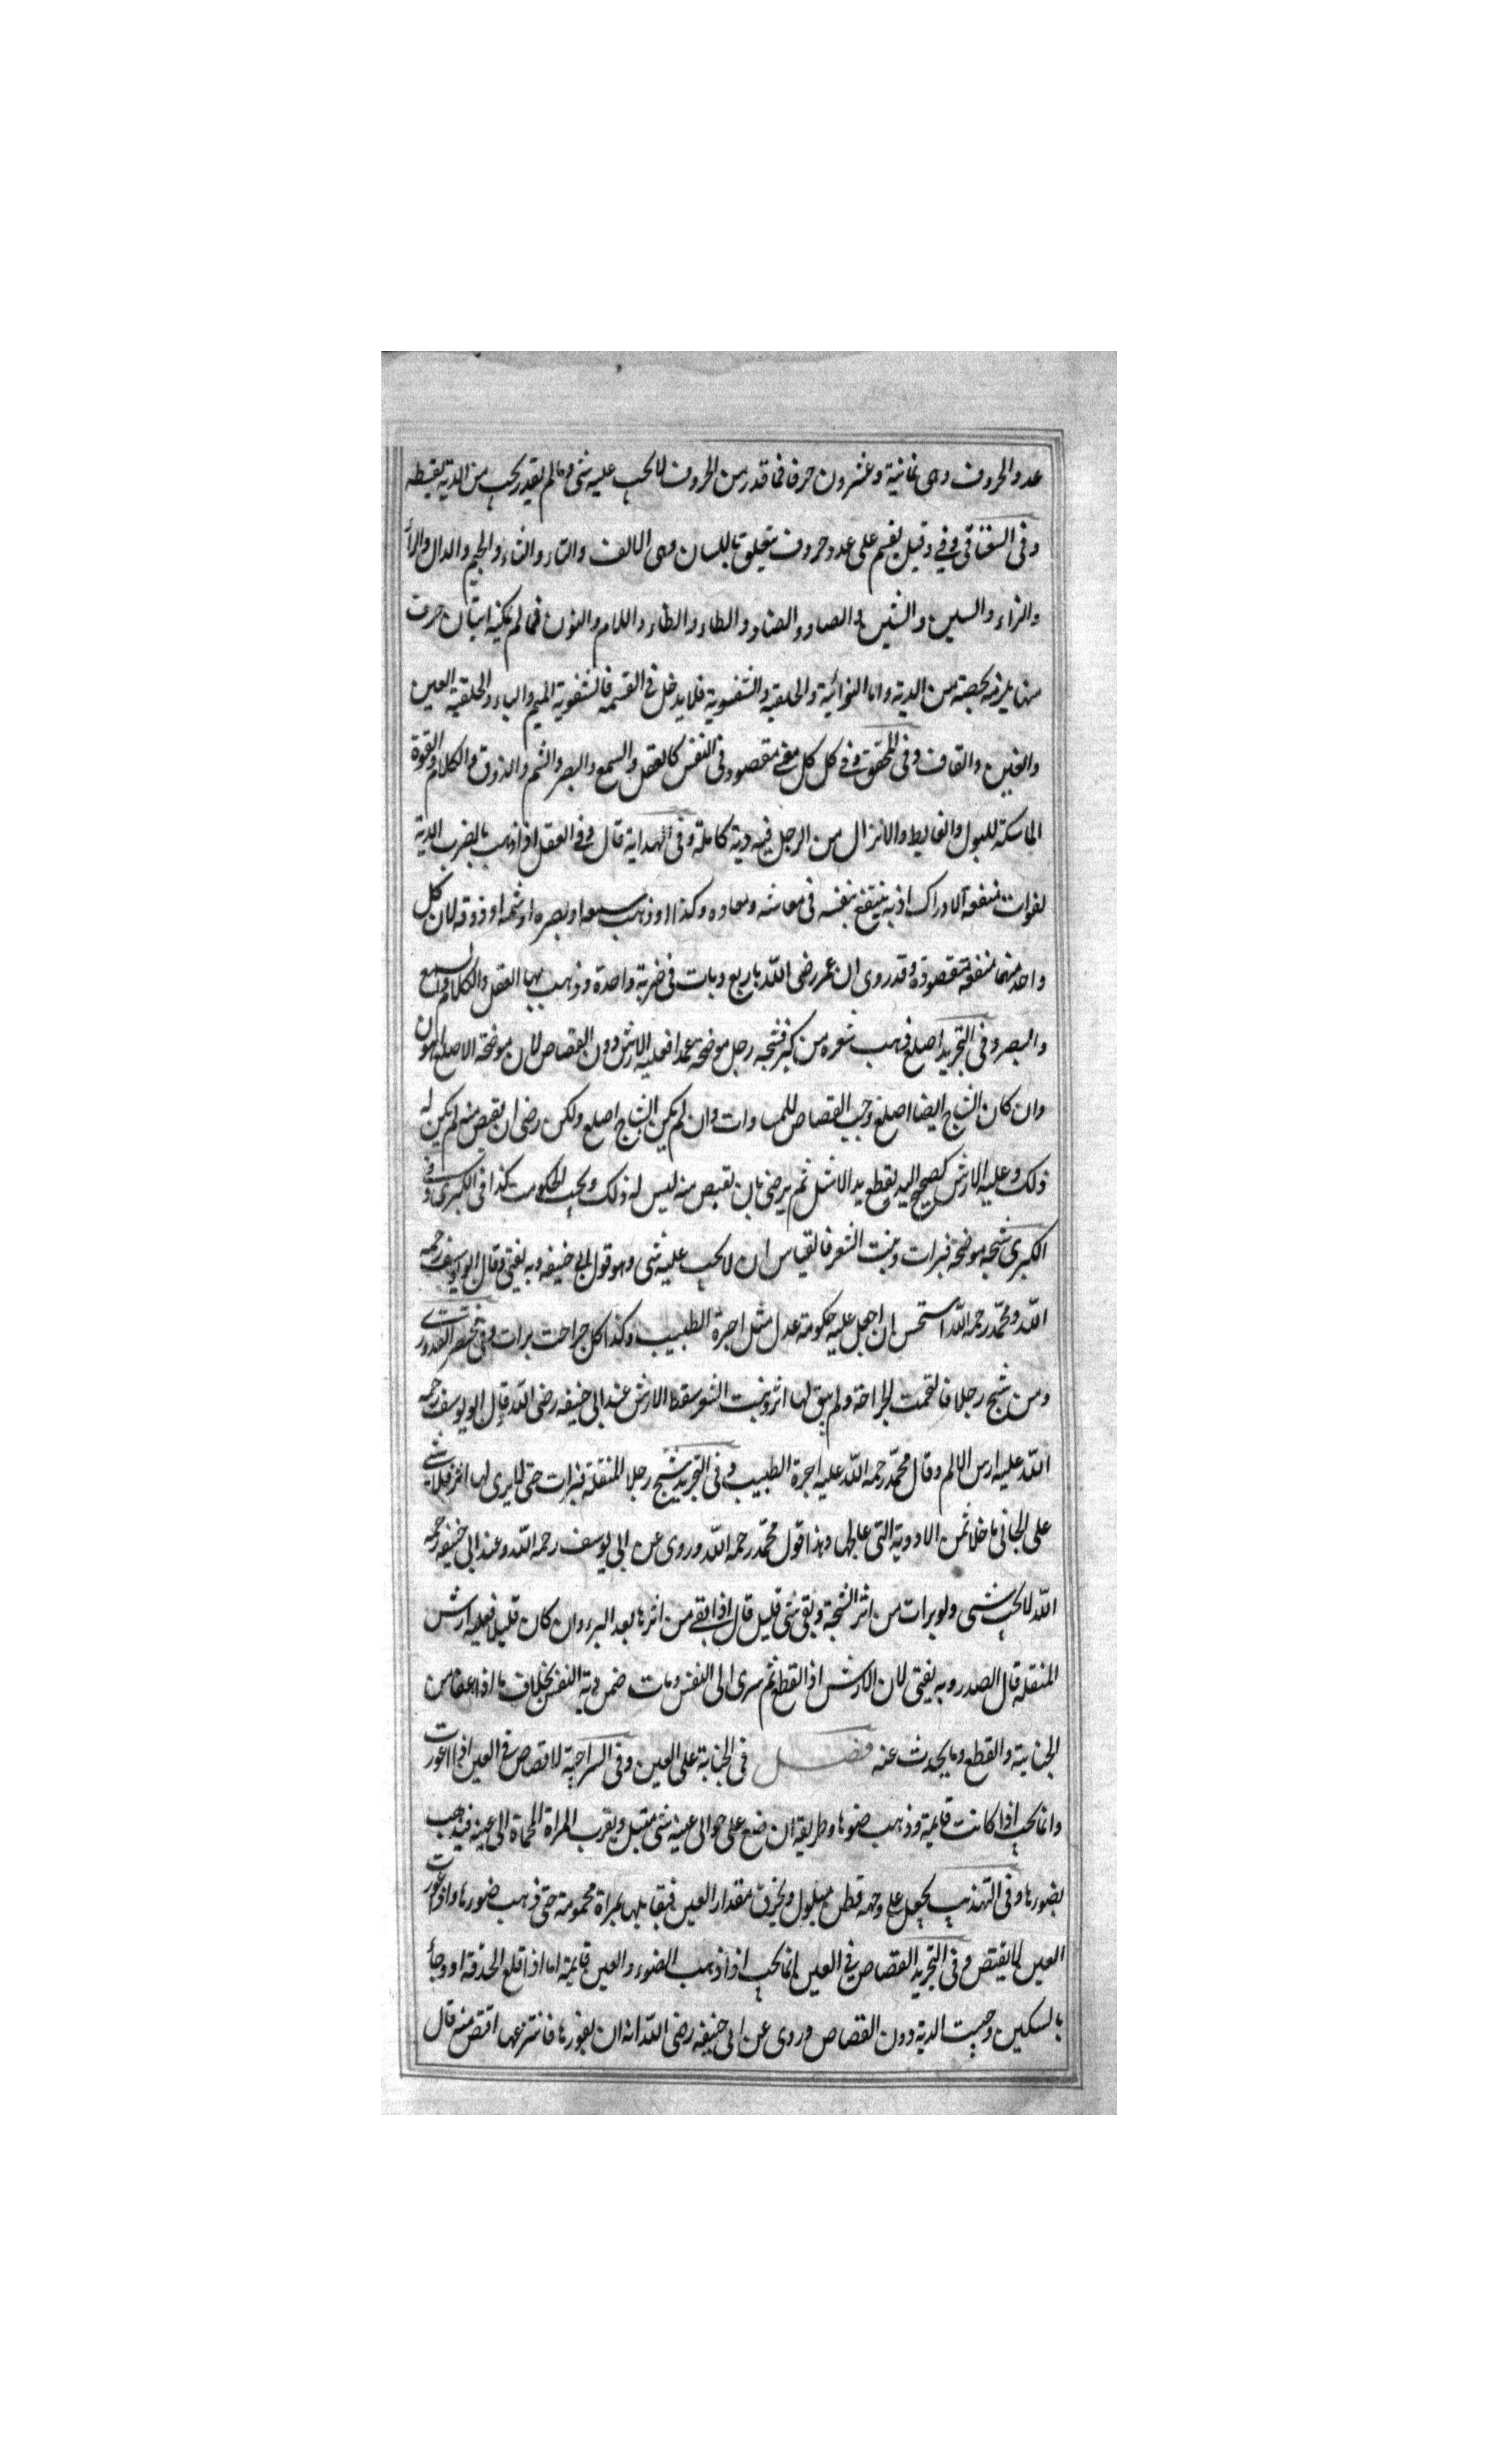 عدد الحروف وهى ثمانية وعشرون حرفا فما قدر من الحروف لا يجب عليه شى وما لم يقدر يجب من الدية بقسطه
وفى السغناقى وفي وقيل يقسم على عدد حروف يتعلق باللسان وهى الالف والتاء والثاء والجيم والدال والراء
والزاء والسين والشين والصاد والضاد والطاء والظاء واللام والنون فما لم يمكنه اتيان حرف
منها يلزمه بحصته من الدية واما الهوائية والحلقية والشفوية فلا يدخل فى القسمة فالشفوية الميم والباء والحلقية العين
والغين والقاف وفى المحقق وفي كل كل معنى مقصود فى النفس كالعقل والسمع والبصر والشم والذوق والكلام والقوة
الماسكة للبول والغايط والانزال من الرجل فيه دية كاملة وفى الهداية قال وفي العقل اذا ذهب بالضرب الدية
لفوات منفعة الادراك اذ به ينتفع بنفسه فى معاشه ومعاده وكذا اذا ذهب سمعه او بصره او شمه او ذوقه لان كل
واحد منهما منفعة مقصودة وقد روى ان عمر رضى الله باربع ديات فى ضربة واحدة وذهب بها العقل والكلام والسمع
والبصر وفى التجريد اصلع ذهب شعره من كبر فشجه رجل موضحة عمدا فعليه الارش دون القصاص لان موضحة الاصلع اهون
وان كان الشاج ايضا اصلع وجب القصاص للمساوات وان لم يكن الشاج اصلع ولكن رضى ان يقص منه لم يكن له
ذلك وعليه الارش كصحيح اليد يقطع يد الاشل ثم يرضى بان يقص منه ليس له ذلك ويجب الحكومت كذا فى الكبرى وفي
الكبرى شجه موضحة فبرات ونبت الشعر فالقياس ان لا يجب عليه شى وهو قول ابى حنيفه وبه يفتى وقال ابو يوسف رحمه
الله ومحمد رحمه الله استحسن ان اجعل عليه حكومة عدل مثل اجرة الطبيب وكذا كل جراحت برات وفى مختصر القدورى
ومن شج رجلا فالتحمت الجراحة ولم يبق لها اثر ونبت الشعر سقط الارش عند ابى حنيفه رضى الله قال ابو يوسف رحمه
الله عليه ارس الالم وقال محمد رحمه الله عليه اجرة الطبيب وفى التجريد شج رجلا المنقلة فبرات حتى لا يرى لها اثر فلا شى
على الجانى ما خلا ثمن الادوية التى عالجها وهذا قول محمد رحمه الله وروى عن ابى يوسف رحمه الله وعند ابى حنيفه رحمه
الله لا يجب شى ولو برات من اثر الشجة وبقى شى قليل قال اذا بقى من اثرها بعد البرء وان كان قليلا فعليه ارش
المنقلة قال الصدر وبه يفتى لان الارش اذا لقطع ثم سرى الى النفس ومات ضمن دية النفس بخلاف ما اذا عفا من
الجناية والقطع وما يحدث عنه فصل فى الجناية على العين وفى السراجية لا قصاص فى العين اذا اعورت
وانما يجب اذا كانت قايمة وذهب ضوها وطريقه ان ضع على حوالى عينه شى مبتل ويقرب المراة المحماة الى عينه فيذهب
بضورها وفى التهذيب يجعل على وجهه قطن مبلول ويخرق مقدار العين فيقابلها بمراة محمومة حتى ذهب ضورها واذا عورت
العين لا يقتص وفى التجريد القصاص فى العين انما يجب اذا ذهب الضوء والعين قايمة اما اذا قلع الحدقة او وجأ
بالسكين وجبت الدية دون القصاص وروى عن ابى حنيفه رضى الله انه ان يغورها فانتزعها اقتص منه قال